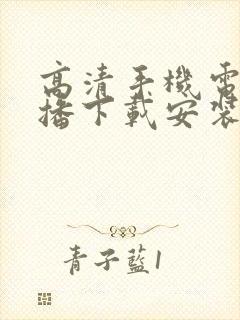 高清手機電
播下載安裝
青子藍1